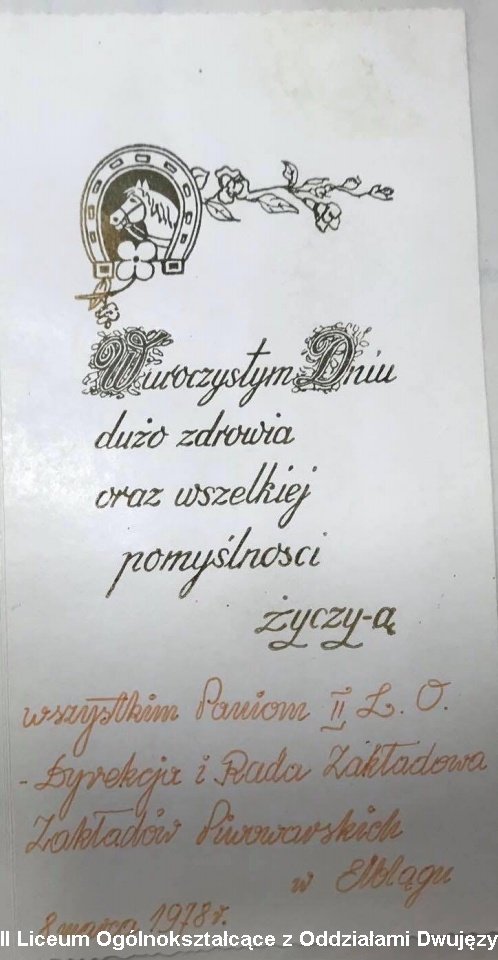 W uroczystym Dniu
dużo zdrowia
oraz wszelkiej
pomyślnosci
życzy-ą
wszystkim Paniom II L. O.
- Dyrekcja i Rada Zakładowa
Zakładów Piwowarskich
w Elblągu
8 marca 1978 r.
II Liceum Ogólnokształcące z Oddziałami Dwujęzy